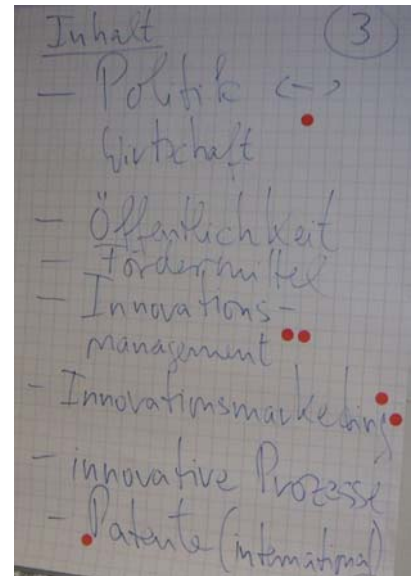 Inhalt ③
- Politik <->
Wirtschaft
- Öffentlichkeit
- Fördermittel
- Innovations-
management
- Innovationsmarketing
- innovative Prozesse
- Patente (international)